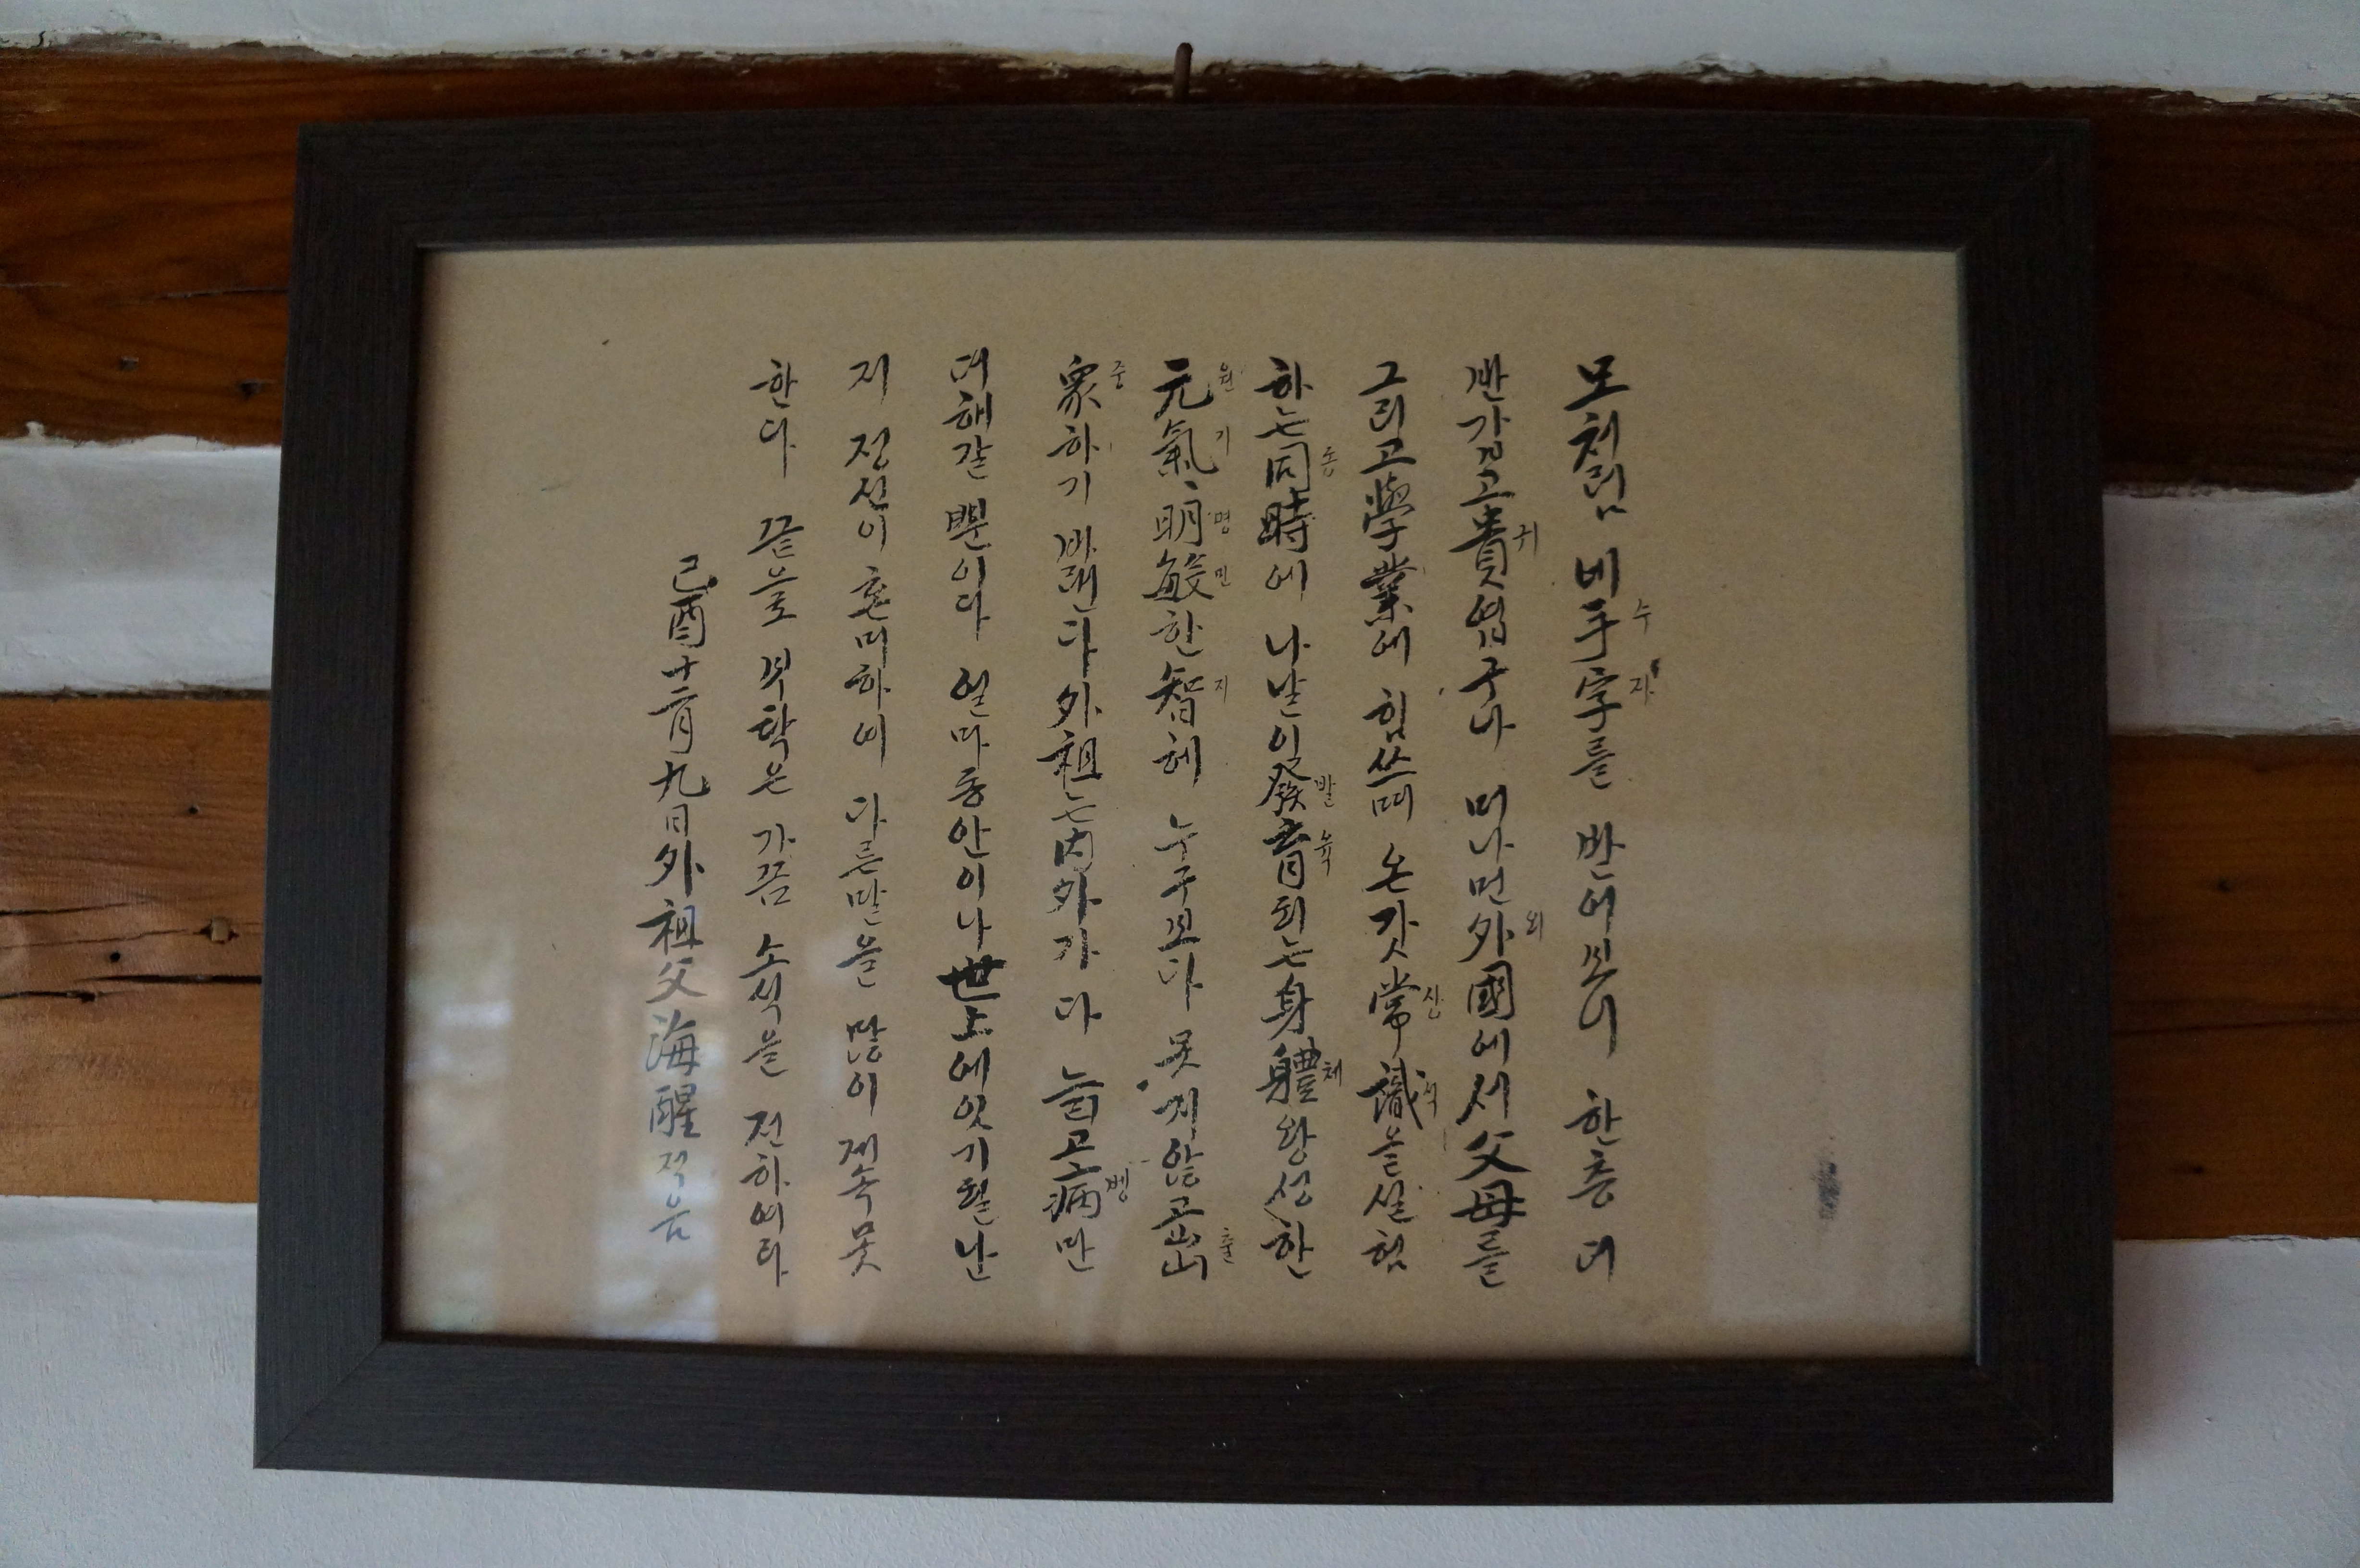 모처럼 비手字를 받어쓰니 한층 더
반갑고 貴엽구나 떠나면 外國에서 父母를
그리고 學業에 힘쓰며 온갓 常識을 실험
하는 同時에 나날이 發育되는 身體 왕성한
元氣、明敏한 智혜 누구보다 못지않고 出
衆하기 바랜다 外祖는 內外가 다 늙고 病만
더해갈 뿐이다 얼마동안이나 世上에 잇기 될난
지 정신이 혼미하여 다른말을 많이 계속 못
한다 끝으로 부탁은 가끔 소식을 전하여라
己酉 十二月 九日 外祖父 海醒 적음
수
자
귀
외
상
식
동
발
육
체
원
기
명
민
지
출
중
병